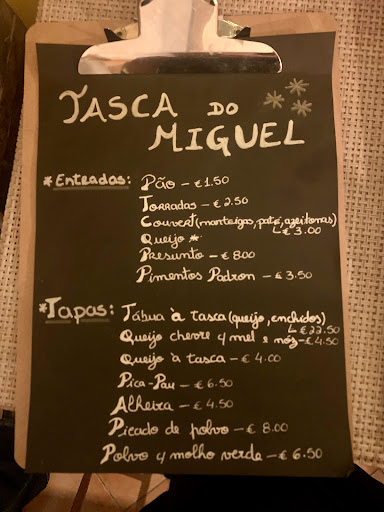 TASCA DO
MIGUEL
*Entradas: Pão - € 1.50
Torradas - € 2.50
Couvert (manteigas, paté, azeitonas)
↳ € 3.00
Queijo *
Presunto - € 8.00
Pimentos Padron - € 3.50
*Tapas: Tábua à tasca (queijo, enchidos)
↳ € 22.50
Queijo chevre c/ mel e nós - € 4.50
Queijo à tasca - € 4.00
Pica-Pau - € 6.50
Alheira - € 4.50
Picado de polvo - € 8.00
Polvo c/ molho verde - € 6.50